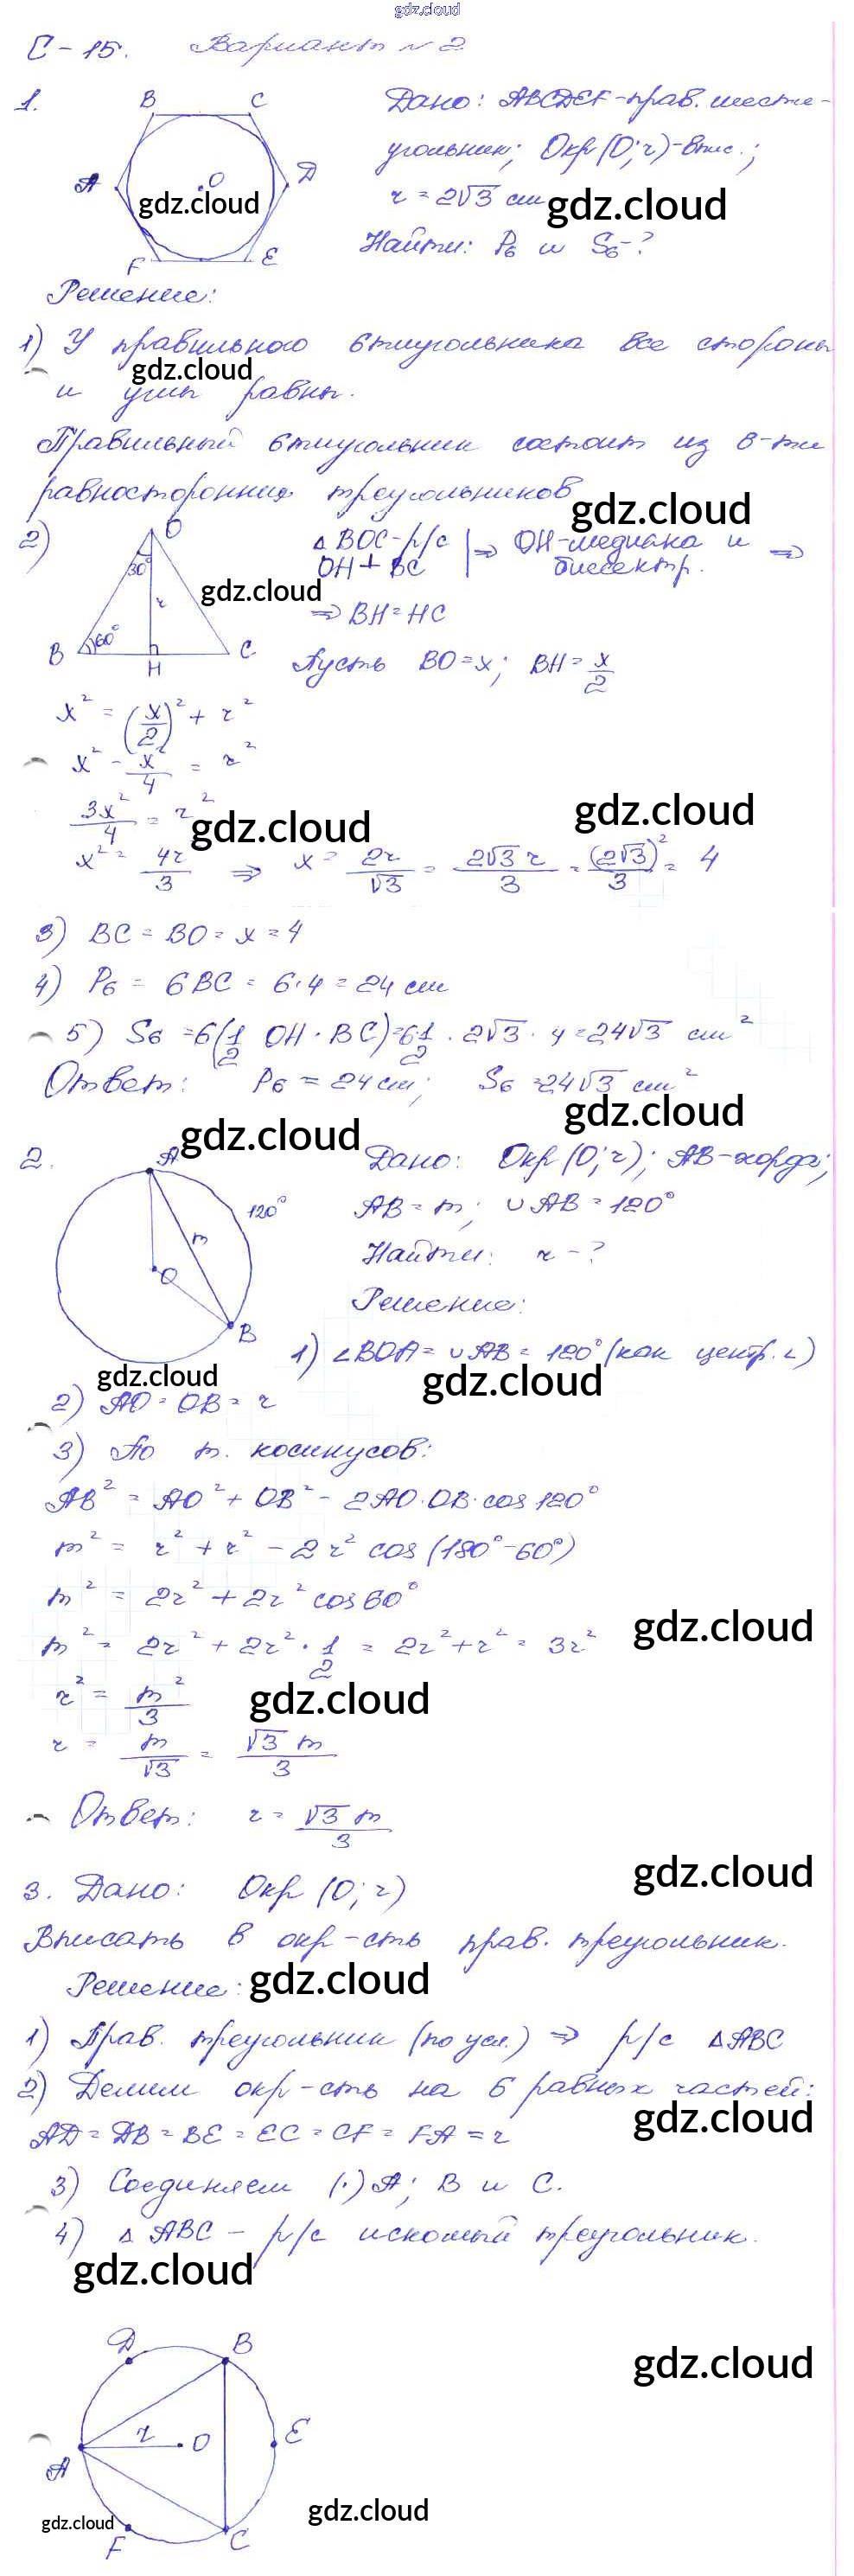 gdz.cloud
С-15. Вариант №2
1. B C Дано: ABCDEF-прав. шести-
угольник; Окр(O;r)-впис.;
A O D r = 2√3 см
gdz.cloud gdz.cloud
F E Найти: P₆ и S₆-?
Решение:
1) У правильного 6тиугольника все стороны
gdz.cloud
и углы равны.
Правильный 6тиугольник состоит из 6-ти
равносторонних треугольников
gdz.cloud
2) O △BOC-р/с | ⇒ OH-медиана и ⇒
30° OH ⊥ BC | биссектр.
r gdz.cloud
⇒ BH=HC
B 60° H C Пусть BO=x; BH=x/2
x² = (x/2)² + r²
x² - x²/4 = r²
3x²/4 = r²
gdz.cloud gdz.cloud
x² = 4r/3 ⇒ x = 2r/√3 = 2√3 r/3 = (2√3)²/3 = 4
3) BC = BO = x = 4
4) P₆ = 6BC = 6·4 = 24 см
5) S₆ = 6(1/2 OH · BC) = 6·1/2 · 2√3 · 4 = 24√3 см²
Ответ: P₆ = 24 см; S₆ = 24√3 см²
gdz.cloud gdz.cloud
2. A Дано: Окр(O;r); AB-хорда;
120° AB = m; ∪AB = 120°
m Найти: r-?
O Решение:
B 1) ∠BOA = ∪AB = 120° (как центр.∠)
gdz.cloud gdz.cloud
2) AO = OB = r
3) По т. косинусов:
AB² = AO² + OB² - 2AO·OB·cos 120°
m² = r² + r² - 2r² cos(180°-60°)
m² = 2r² + 2r² cos60°
gdz.cloud
m² = 2r² + 2r² · 1/2 = 2r² + r² = 3r²
r² = m²/3
gdz.cloud
r = m/√3 = √3 m/3
Ответ: r = √3 m/3
gdz.cloud
3. Дано: Окр(O;r)
Вписать в окр-сть прав. треугольник.
Решение:
gdz.cloud
1) Прав. треугольник (по усл.) ⇒ р/с △ABC
2) Делим окр-сть на 6 равных частей:
gdz.cloud
AD = DB = BE = EC = CF = FA = r
3) Соединяем (·) A; B и C.
4) △ABC - р/с искомый треугольник.
gdz.cloud
D B
gdz.cloud
r O E
A
gdz.cloud gdz.cloud
F C